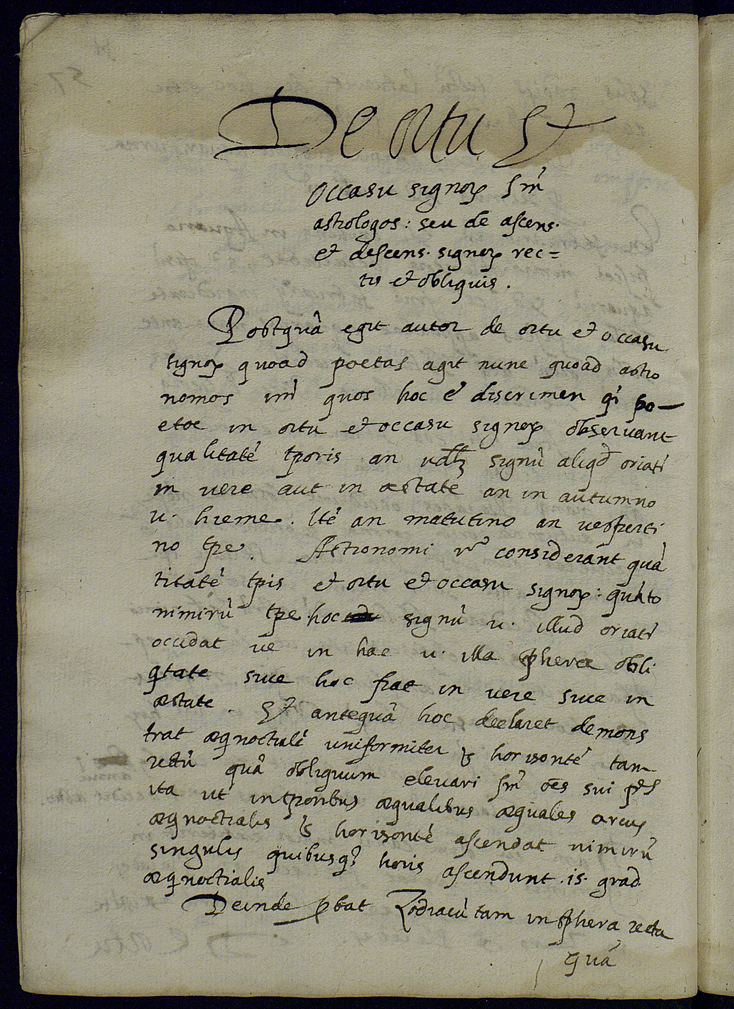 De ortu et
occasu signoꝝ sm̃
astrologos: seu de ascens.
et descens. signoꝝ rec=
tis et obliquis.
Postquã egit autor de ortu et occasu
signoꝝ quoad poetas agit nunc quoad astro
nomos int̃ quos hoc ẽ discrimen qꝫ po-
etae in ortu et occasu signoꝝ observant
qualitatẽ tp̃oris an signũ aliqđ oriat̃
in vere aut in aestate an in autumno
v. hieme. Itẽ an matutino an vesperti
no tp̃e. Astronomi v̊ considerant quã
titatẽ tp̃is et ortu et occasu signoꝝ: quãto
nimirũ tp̃e hoc signũ v. illud oriat̃
occidat ve in hac v. illa sphera obli
qtate sive hoc fiat in vere sive in
aestate. Et antequã hoc declaret demons
trat aeqnoctialẽ uniformiter horisontẽ tam
rectũ quã obliquum elevari sm̃ oẽs sui ptẽs
ita ut in tp̃oribus aequalibus aequales arcus
aeqnoctialis horisontẽ ascendat nimirũ
singulis quibusqꝫ horis ascendunt .15. grad
aeqnoctialis
Deinde ꝓbat Zodiacũ tam in sphera recta
quã